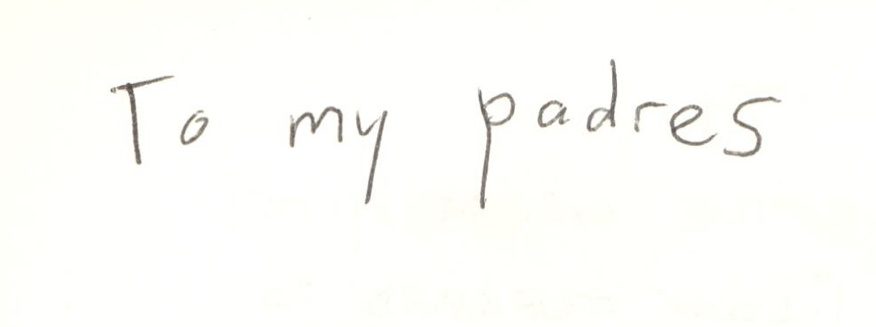 To my padres